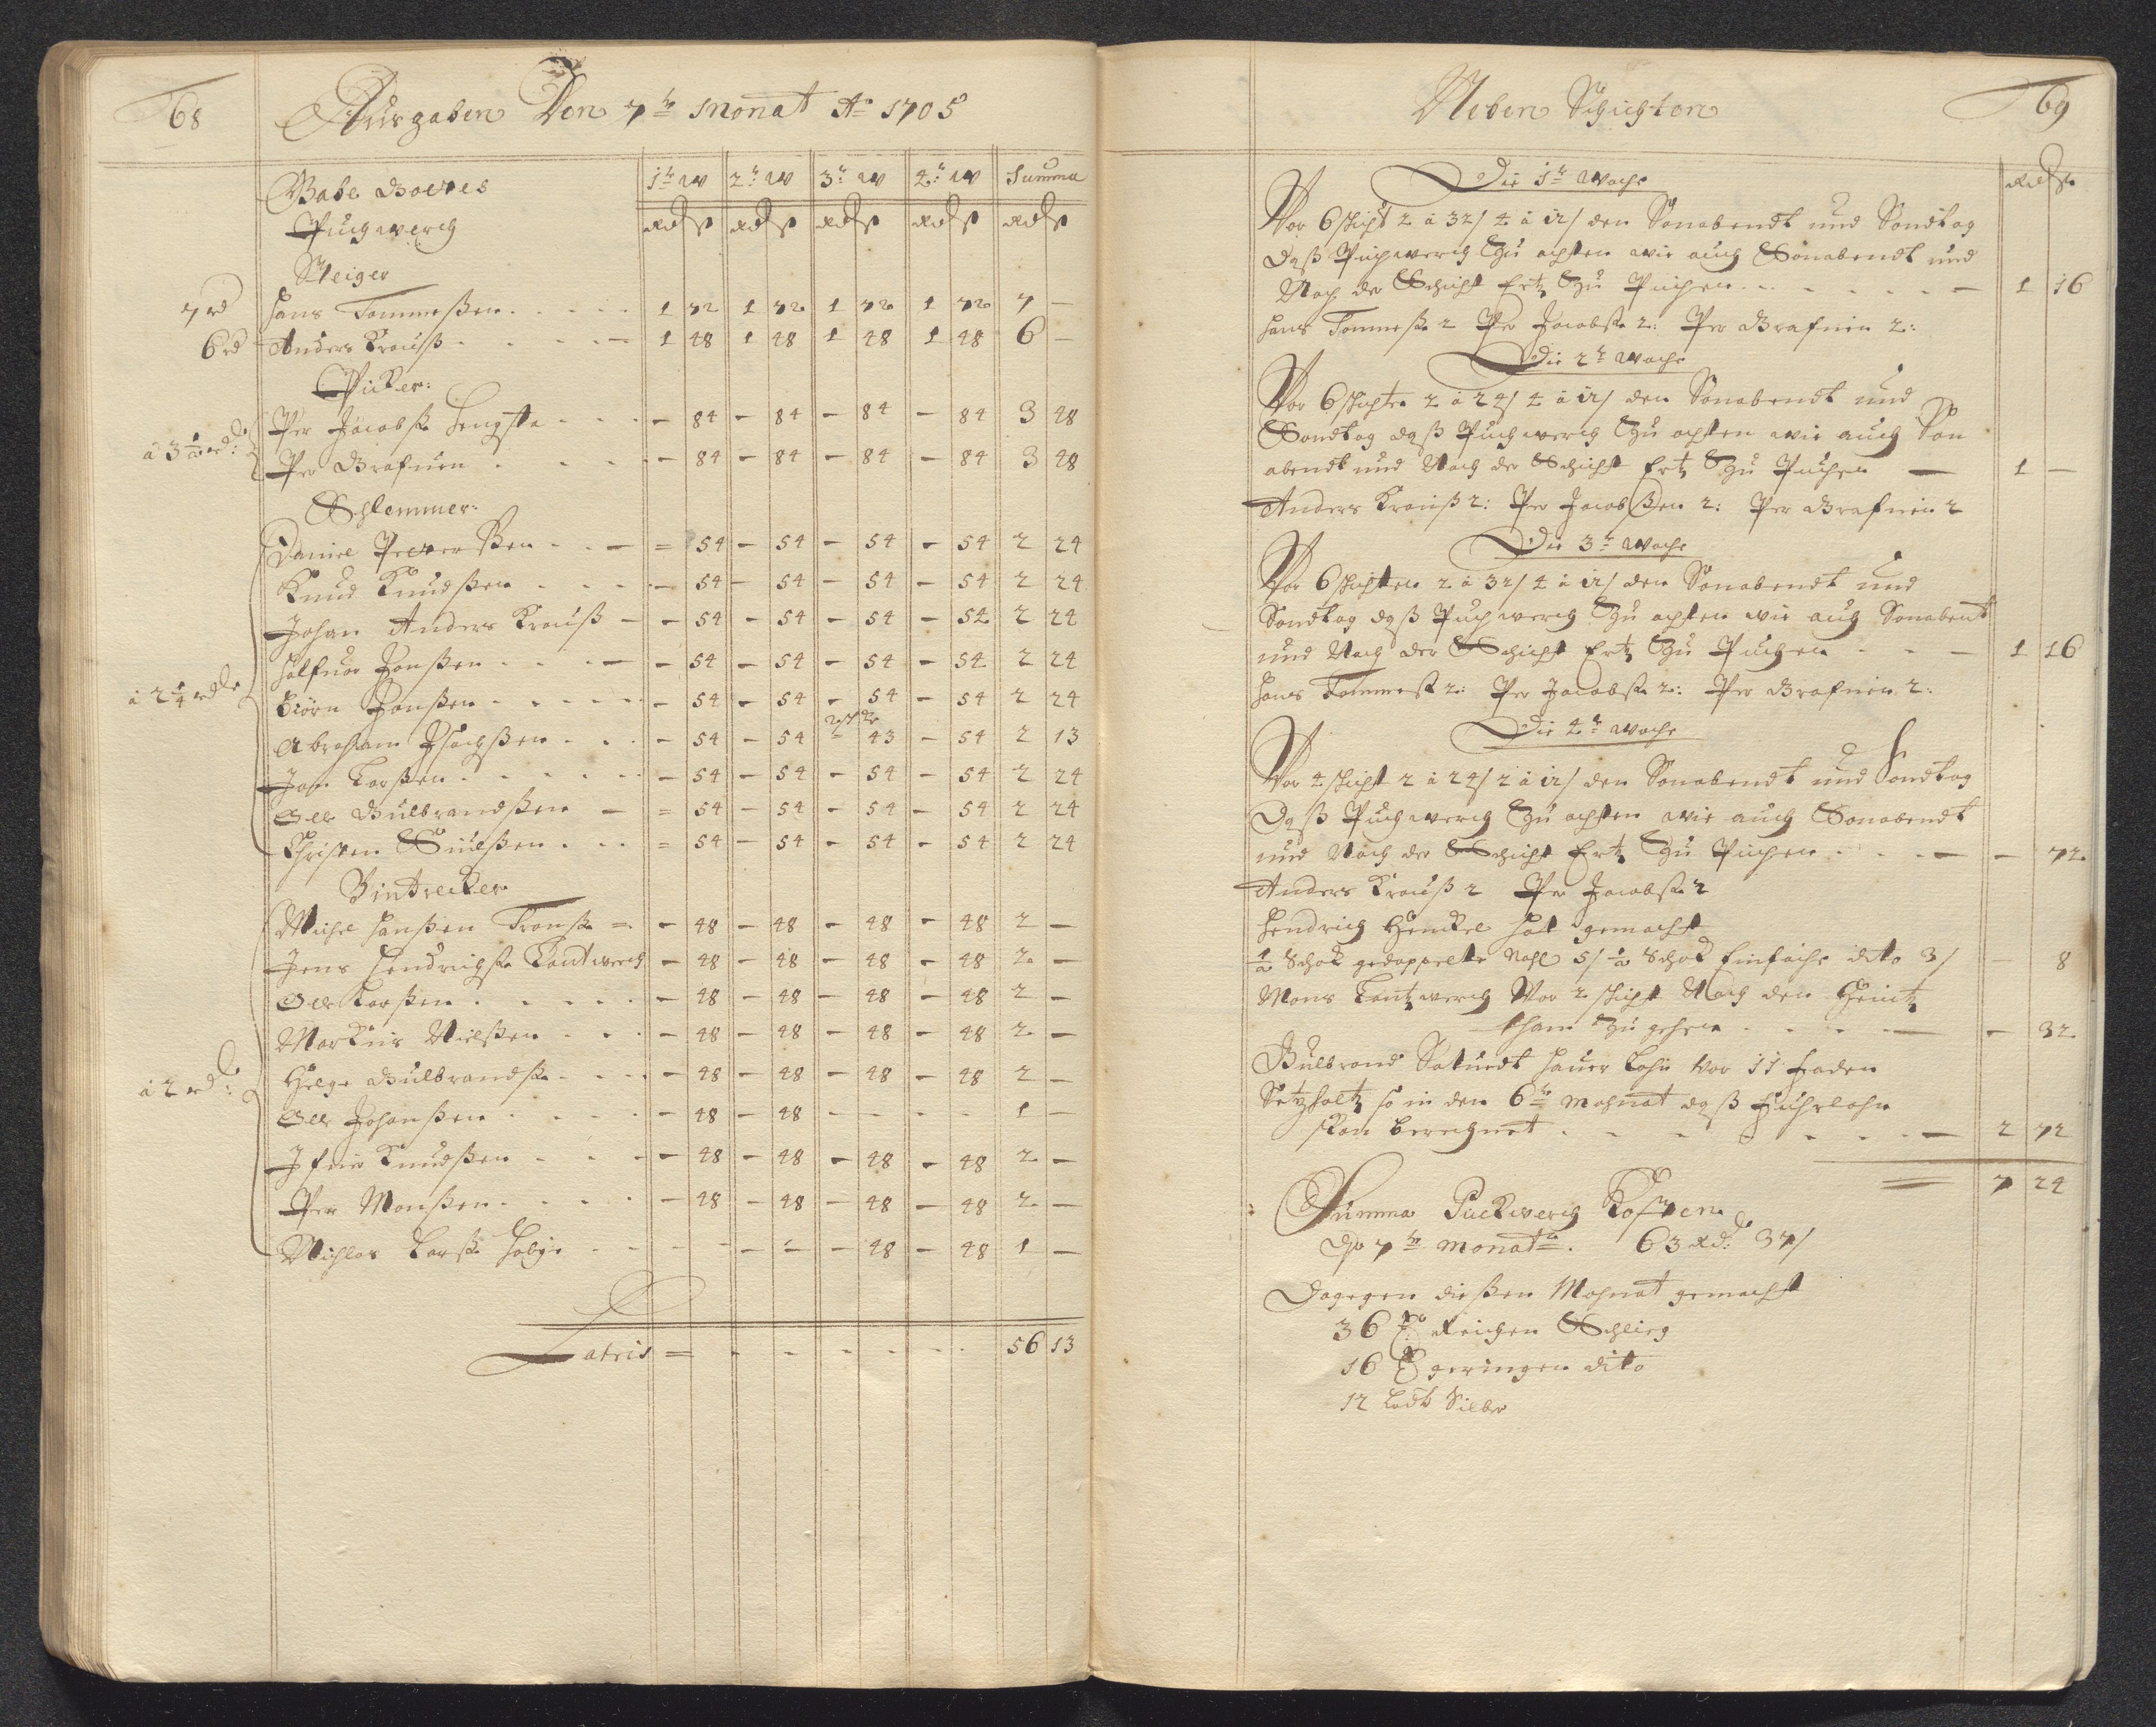 68
Ausgaben Den 7te Monat Ao 1705
Gabe Gottes
Puchwerch
1te W 2te W 3te W 4te W Summa
Rd ß Rd ß Rd ß Rd ß Rd ß
Steiger
7 rd Hans Tommeßen . . . . . 1 72 1 72 1 72 1 72 7 —
6 rd Anders Krauß . . . . — 1 48 1 48 1 48 1 48 6 —
Pucker:
à 3 1/2 rd:
Per Jacobß. Lengste . . . — 84 — 84 — 84 — 84 3 48
Per Grafuen . . . . — 84 — 84 — 84 — 84 3 48
Schlemmer:
à 2 1/4 rd
Daniel Pederßen . . — = 54 — 54 — 54 — 54 2 24
Knud Knudßen . . . . — 54 — 54 — 54 — 54 2 24
Johan Anders Krauß — — 54 — 54 — 54 — 54 2 24
Halfuor Jonßen . . . — — 54 — 54 — 54 — 54 2 24
Biörn Jonßen . . . . . — 54 — 54 — 54 — 54 2 24
Abraham Isachßen . . . — 54 — 54 — 43 — 54 2 13
Jon Larßen . . . . . . — 54 — 54 — 54 — 54 2 24
Olle Gulbrandßen — = 54 — 54 — 54 — 54 2 24
Christen Siulßen . . . = 54 — 54 — 54 — 54 2 24
Hintrecker
à 2 rd:
Michel Hanßen Tronß. = — 48 — 48 — 48 — 48 2 —
Jens Hendrichß. Kantwerch — 48 — 48 — 48 — 48 2 —
Olle Larßen . . . . . — 48 — 48 — 48 — 48 2 —
Markus Nielßen . . . — 48 — 48 — 48 — 48 2 —
Helge Gulbrandß. . . . — 48 — 48 — 48 — 48 2 —
Olle Johanßen . . . . — 48 — 48 — — — — 1 —
Ifuer Knudßen . . . — 48 — 48 — 48 — 48 2 —
Per Monßen . . . . — 48 — 48 — 48 — 48 2 —
Nichlas Larß. Holge . . . — — — — — 48 — 48 1 —
Latris = . . . . . . 56 13
Neben Schichten
69
Rd ß
Die 1te Woche
Vor 6 schicht 2 à 32/ 4 à 12/ den Sonabendt und Sondtag
daß Puchwerch Zu achten wie auch Sonabendt und
Nach der Schicht Ertz Zu Puchen . . . . . . — 1 16
Hans Tommeß. 2 Per Jacobß. 2: Per Grafuen 2:
Die 2te Woche
Vor 6 schichten 2 à 24/ 4 à 12/ den Sonabendt und
Sondtag daß Puchwerch Zu achten wie auch Son
abendt und Nach der Schicht Ertz Zu Puchen — 1 —
Anders Krauß 2: Per Jacobßen 2: Per Grafuen 2
Die 3te Woche
Vor 6 schichten 2 à 32/ 4 à 12/ den Sonabendt und
Sondtag daß Puchwerch Zu achten wie auch Sonabent
und Nach der Schicht Ertz Zu Puchen . . — 1 16
Hans Tommeß. 2: Per Jacobß. 2: Per Grafuen 2:
Die 4te Woche
Vor 4 schicht 2 à 24/ 2 à 12/ den Sonabendt und Sondtag
Daß Puchwerch Zu achten wie auch Sonabendt
und Nach der Schicht Ertz Zu Puchen . . . — — 72
Anders Krauß 2 Per Jacobß. 2
Hendrich Henckel hat gemacht
1/2 Schok gedoppelte Nahl 5/ 1/2 Schok Einfache dito 3/ — 8
Mons Kantzwerch Vor 2 schicht Nach den Heintz
Zu gehen . . . . — — 32
Gulbrand Hauer Lohn Vor 11 Faden
Setzholtz so in den 6te Mohnat daß Fuhrlohn
berechnet . . . . . . . — 2 72
= 7 24
Summa Puckwerch Kosten
7te Monat. 63 Rd: 37/
Dagegen dießen Mohnat gemacht
36 Reichen Schlieg
16 geringen dito
12 Lodt Silber